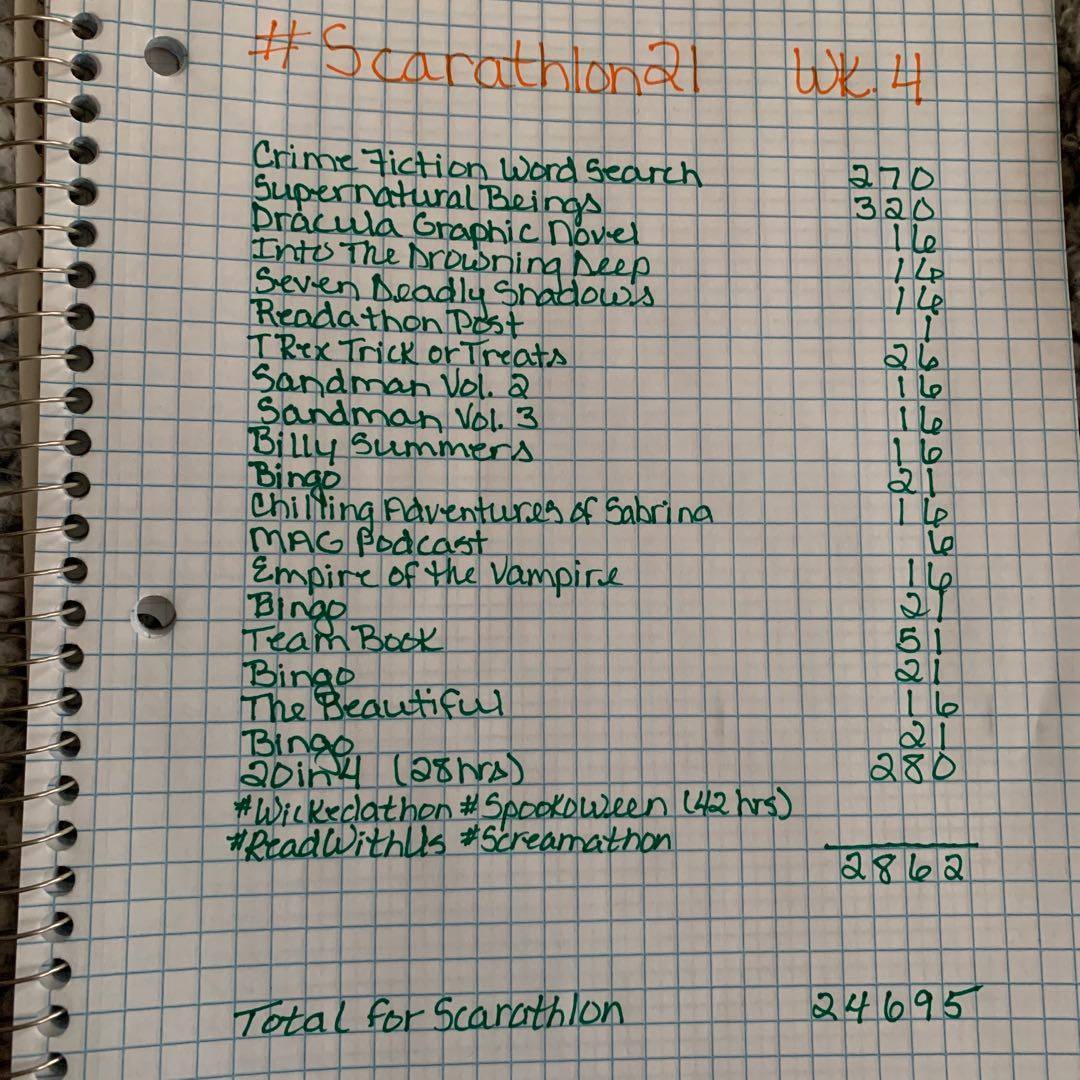 #Scarathlon21 Wk. 4
Crime Fiction Word Search 270
Supernatural Beings 320
Dracula Graphic Novel 16
Into The Drowning Deep 16
Seven Deadly Shadows 16
Readathon Post 1
T Rex Trick or Treats 26
Sandman Vol. 2 16
Sandman Vol. 3 16
Billy Summers 16
Bingo 21
Chilling Adventures of Sabrina 16
MAG Podcast 6
Empire of the Vampire 16
Bingo 21
Team Book 51
Bingo 21
The Beautiful 16
Bingo 21
20in4 (28hrs) 280
#Wickedathon #Spookoween (42 hrs)
#ReadWithUs #Screamathon
2862
Total for Scarathlon 24695